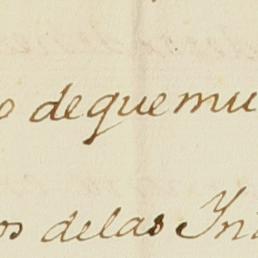 o deque mu
os delas Yn